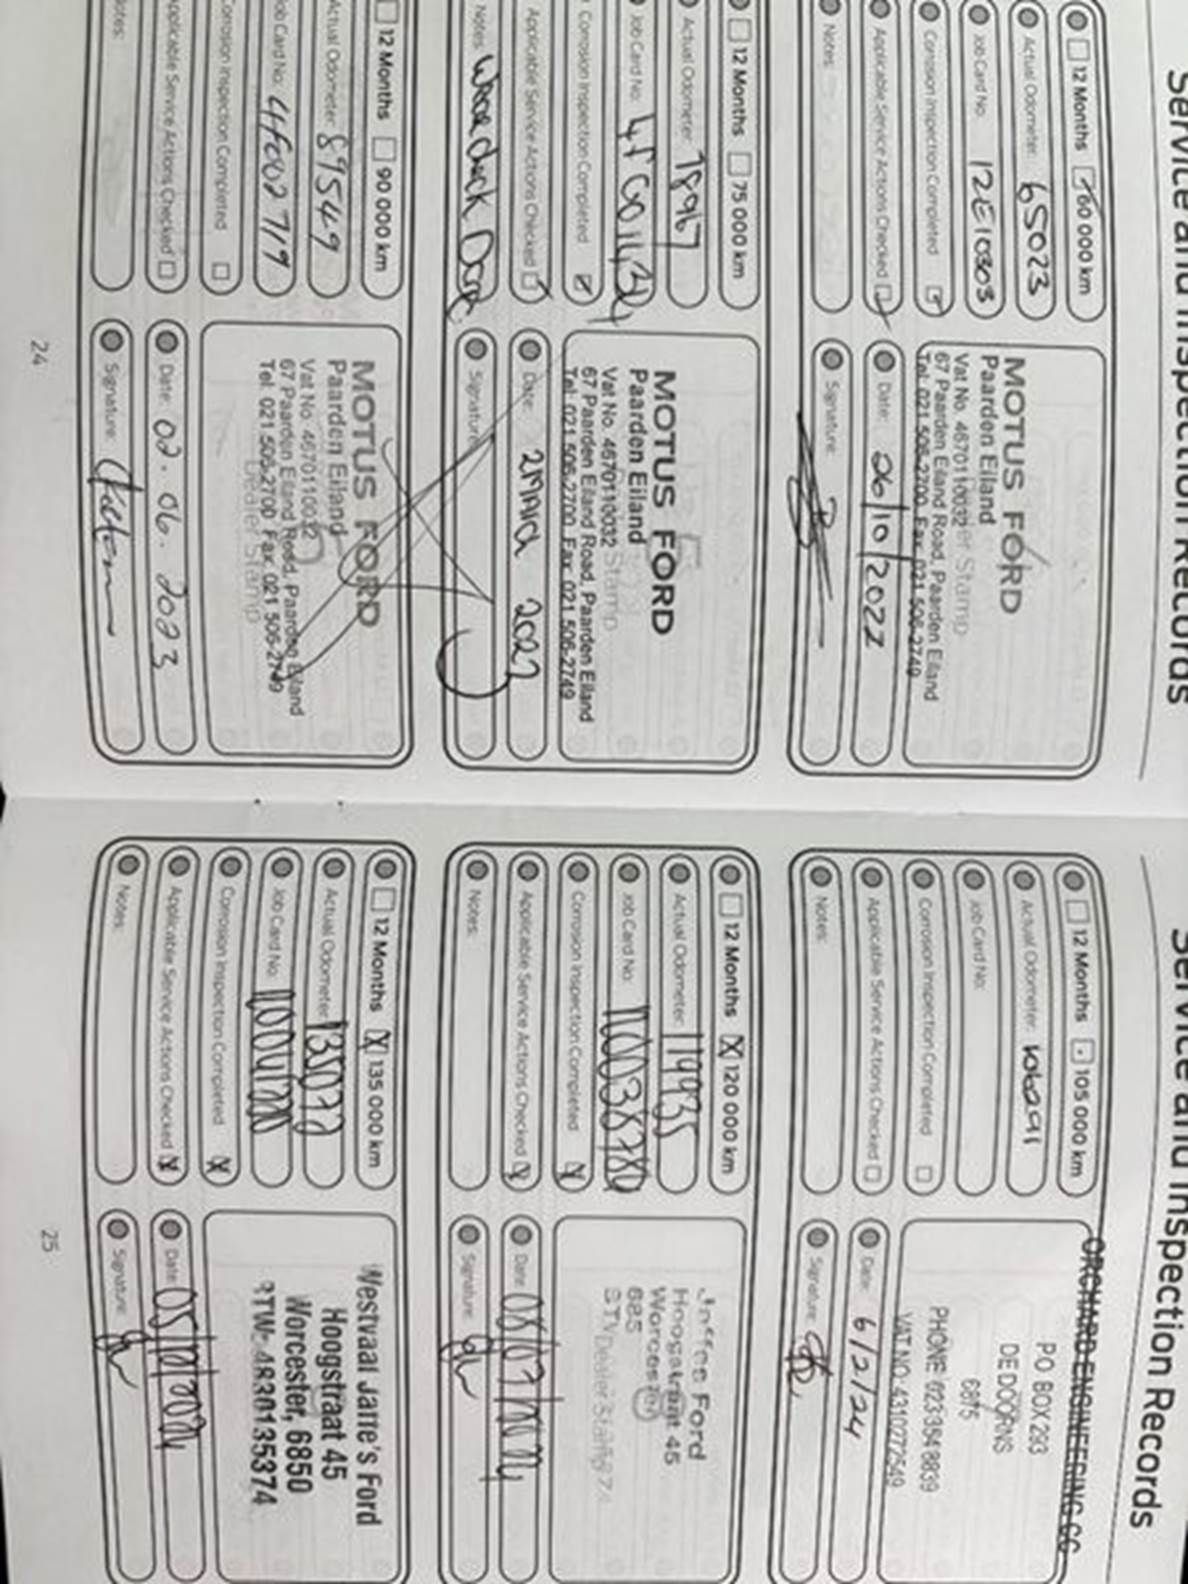 Service and Inspection Records
12 Months 60 000 km
Actual Odometer: 65023
Job Card No: 12E10303
Corrosion Inspection Completed
Applicable Service Actions Checked
Notes:
MOTUS FORD
Paarden Eiland
Vat No. 4670110032
67 Paarden Eiland Road, Paarden Eiland
Tel: 021 506-2700 Fax: 021 506-2749
Date: 26/10/2022
Signature:
12 Months 75 000 km
Actual Odometer: 78967
Job Card No:
Corrosion Inspection Completed
Applicable Service Actions Checked
Notes:
MOTUS FORD
Paarden Eiland
Vat No. 4670110032
67 Paarden Eiland Road, Paarden Eiland
Tel: 021 506-2700 Fax: 021 506-2749
Date: 2023
Signature:
12 Months 90 000 km
Actual Odometer: 89549
Job Card No: 4F002719
Corrosion Inspection Completed
Applicable Service Actions Checked
Notes:
MOTUS FORD
Paarden Eiland
Vat No. 4670110032
67 Paarden Eiland Road, Paarden Eiland
Tel: 021 506-2700 Fax: 021 506-2749
Dealer Stamp
Date: 02.06.2023
Signature:
24
Service and Inspection Records
12 Months 105 000 km
Actual Odometer:
Job Card No:
Corrosion Inspection Completed
Applicable Service Actions Checked
Notes:
ORCHARD ENGINEERING CC
PO BOX 293
DE DOORNS
6875
PHONE: 023 354 8839
VAT NO: 4310272549
Date: 6/2/24
Signature:
12 Months 120 000 km
Actual Odometer: 119935
Job Card No:
Corrosion Inspection Completed
Applicable Service Actions Checked
Notes:
Ford
Hoogstraat 45
Worcester
685
Date: 08/07/2024
Signature:
12 Months 135 000 km
Actual Odometer:
Job Card No:
Corrosion Inspection Completed
Applicable Service Actions Checked
Notes:
Westvaal Jaffe's Ford
Hoogstraat 45
Worcester, 6850
BTW- 4830135374
Date:
Signature:
25